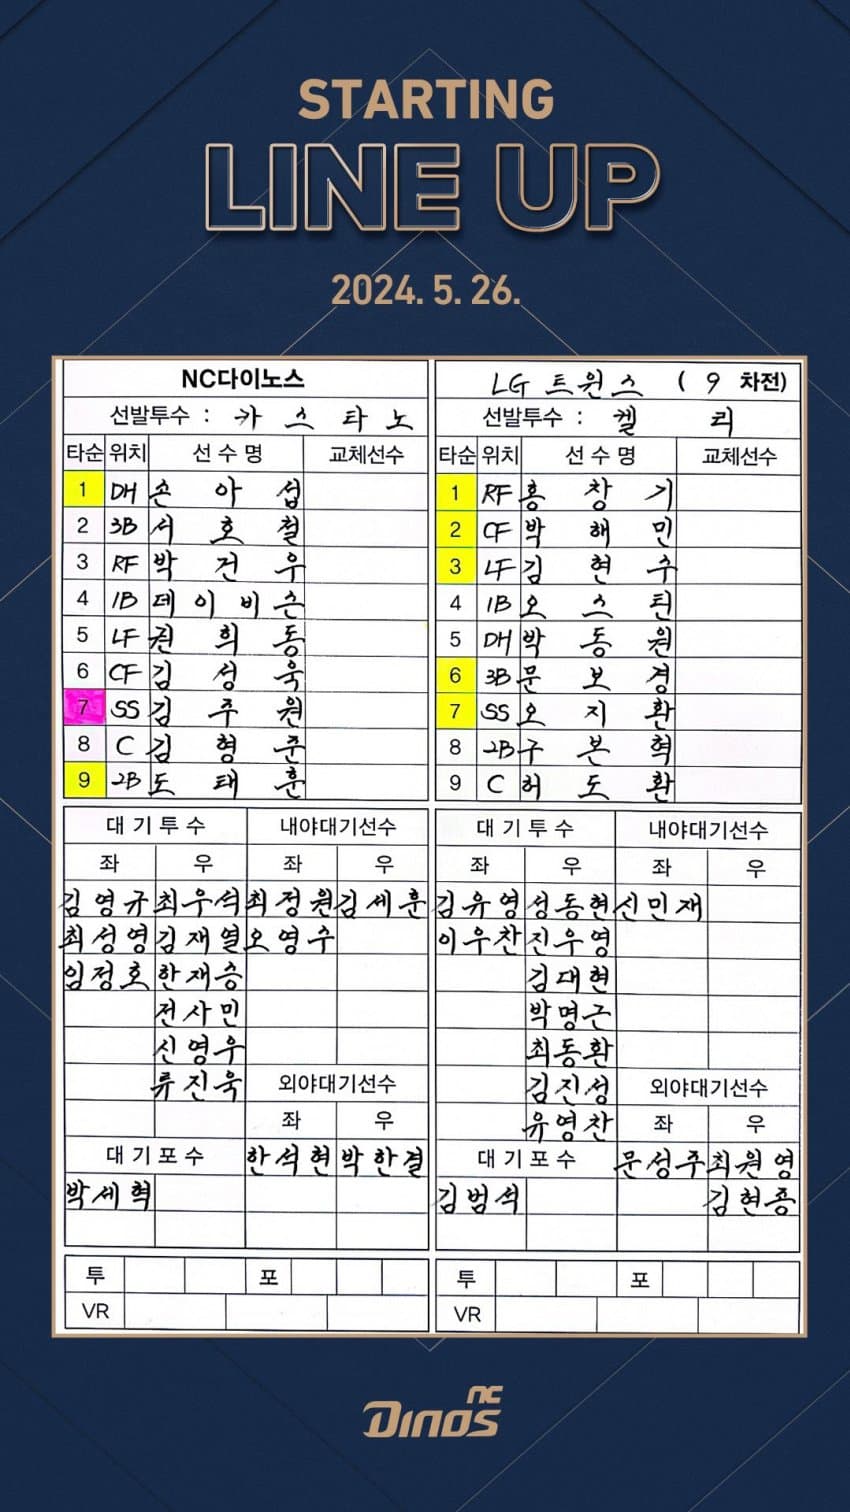 STARTING
LINE UP
2024. 5. 26.
NC다이노스
선발투수 : 카스타노
타순 위치 선수명 교체선수
1 DH 손아섭
2 3B 서호철
3 RF 박건우
4 1B 데이비슨
5 LF 권희동
6 CF 김성욱
7 SS 김주원
8 C 김형준
9 2B 도태훈
대기투수 내야대기선수
좌 우 좌 우
김영규 최우석 최정원 김세훈
최성영 김재열 오영수
임정호 한재승
전사민
신영우
류진욱 외야대기선수
좌 우
대기포수 한석현 박한결
박세혁
투 포
VR
LG트윈스 ( 9 차전)
선발투수 : 켈리
타순 위치 선수명 교체선수
1 RF 홍창기
2 CF 박해민
3 LF 김현수
4 1B 오스틴
5 DH 박동원
6 3B 문보경
7 SS 오지환
8 2B 구본혁
9 C 허도환
대기투수 내야대기선수
좌 우 좌 우
김유영 성동현 신민재
이우찬 진우영
김대현
박명근
최동환
김진성 외야대기선수
유영찬 좌 우
대기포수 문성주 최원영
김범석 김현종
투 포
VR
NC
DINOS